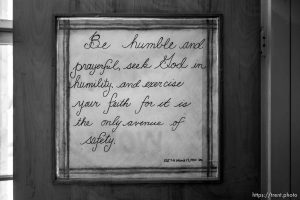 Be humble and
prayerful, seek God in
humility, and exercise
your faith for it is
the only avenue of
safety.
https://trent.photo